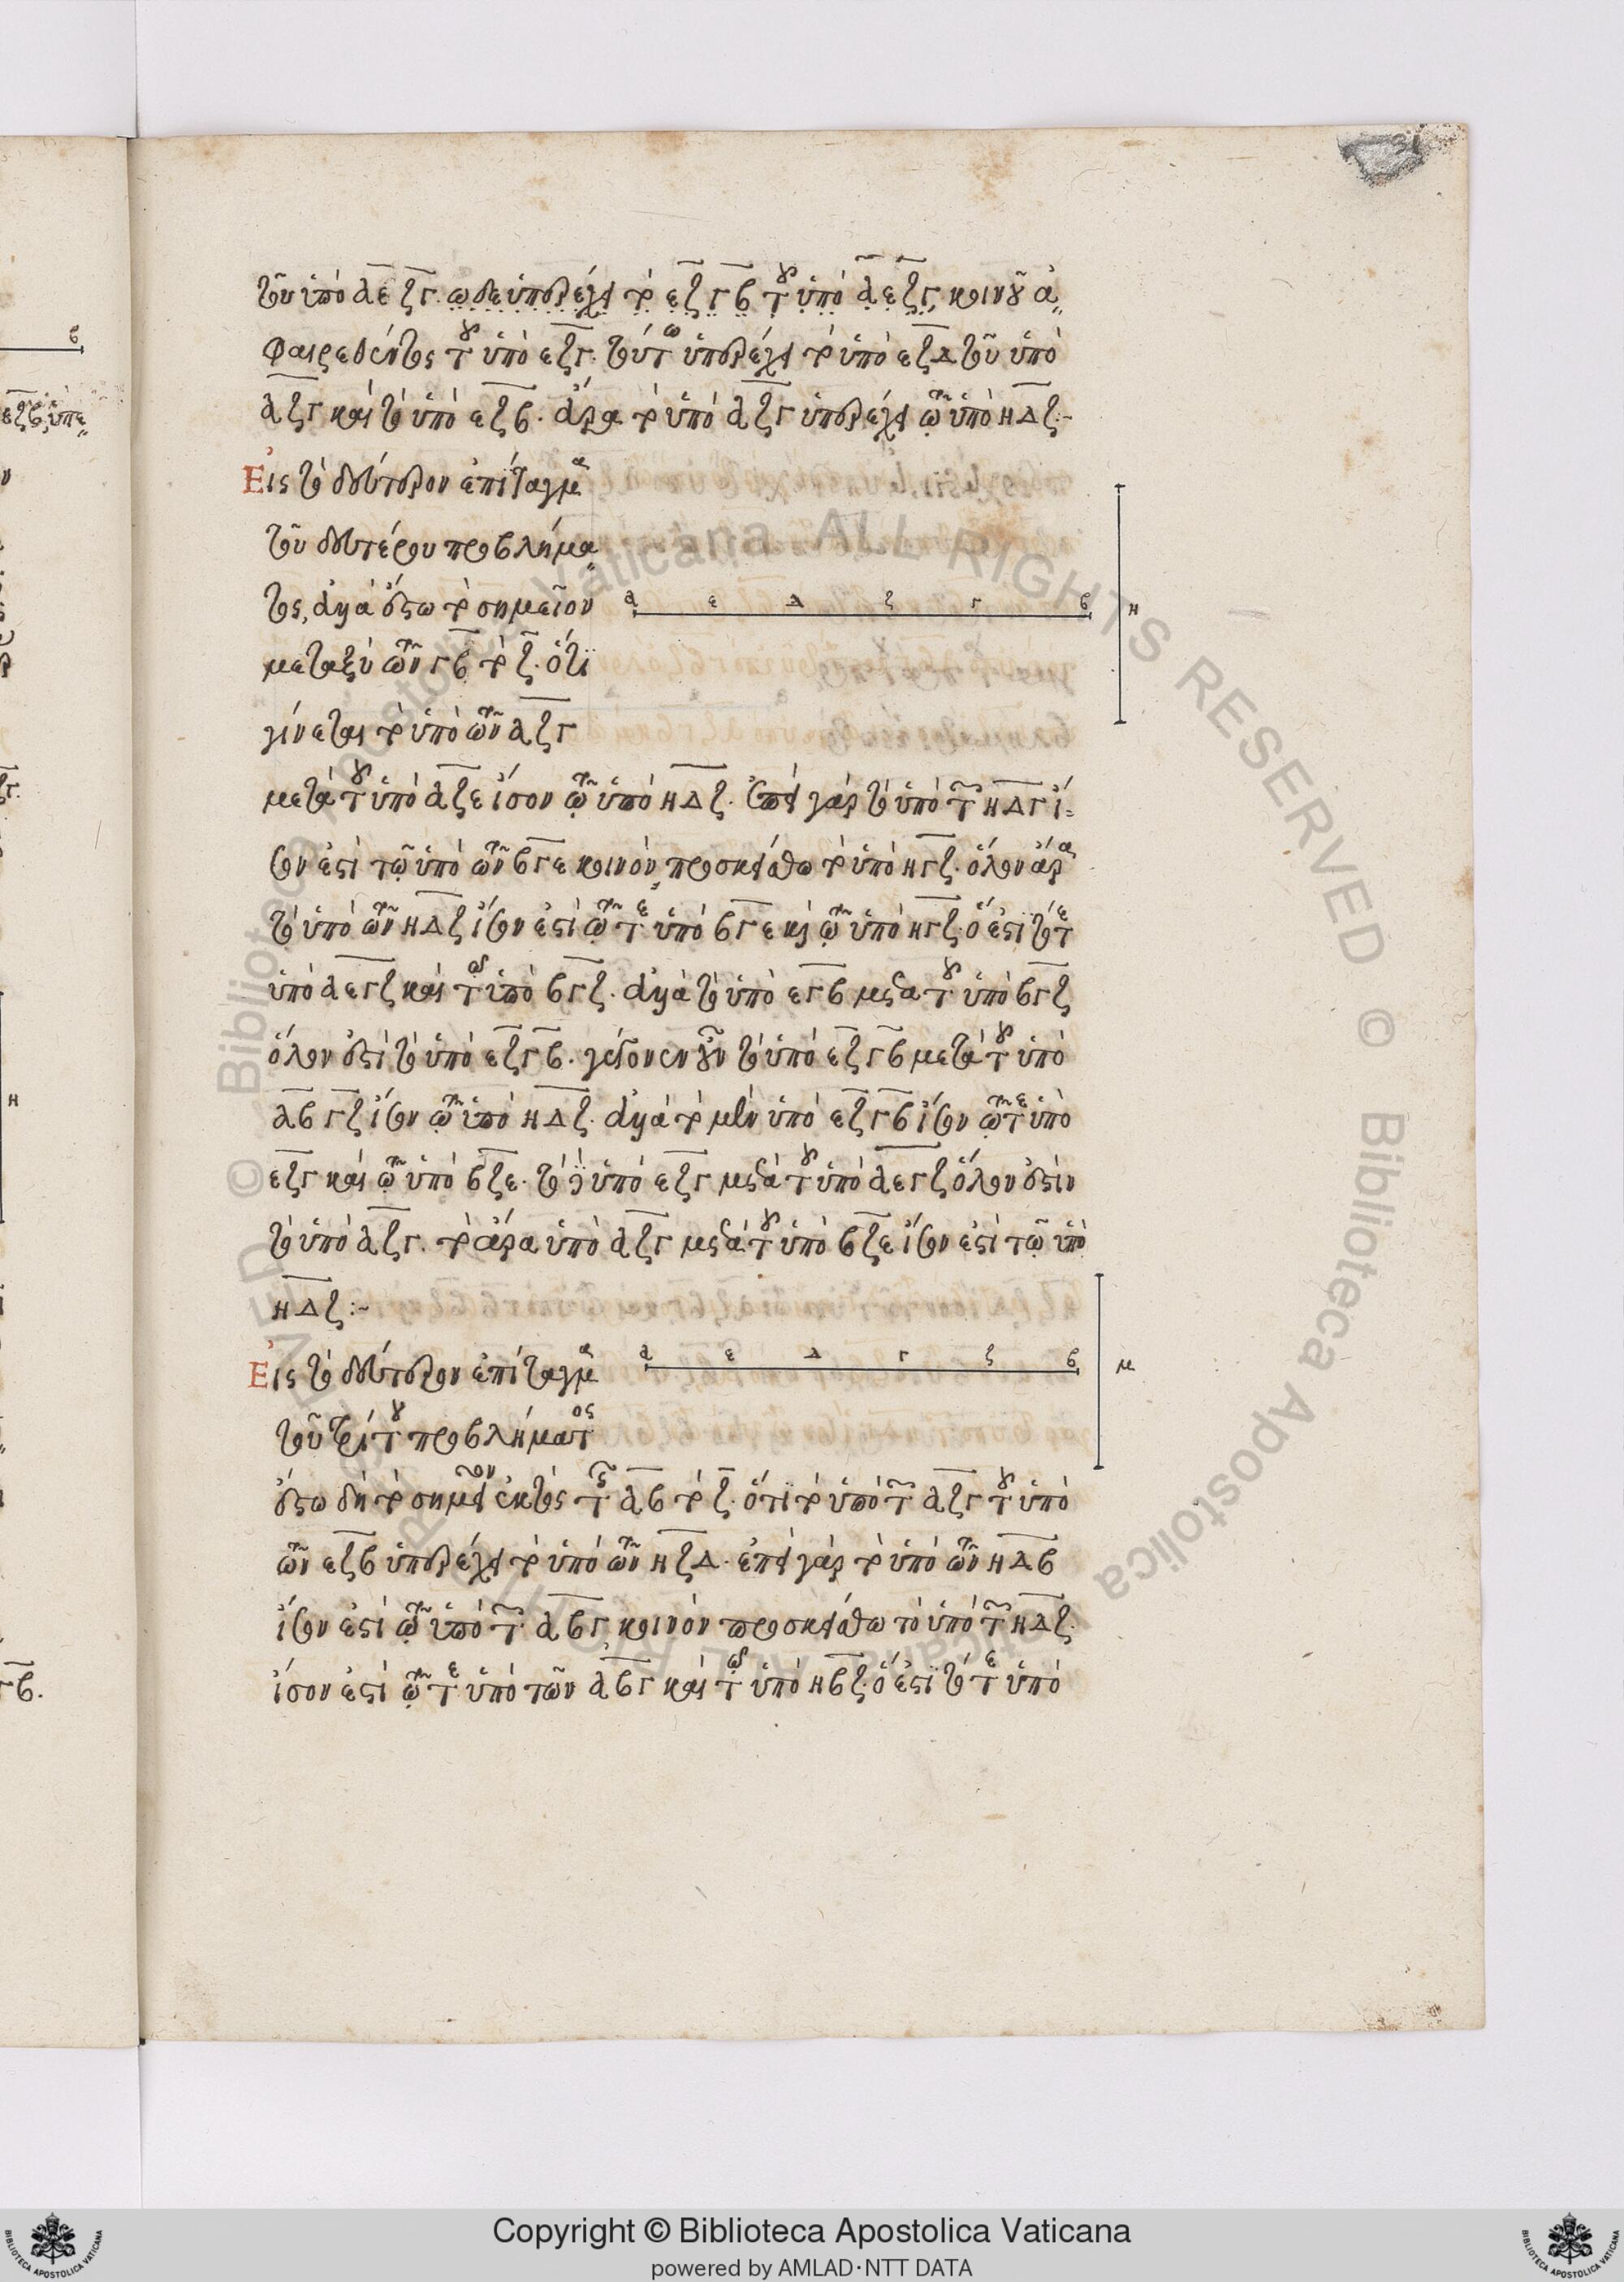 τοῦ ὑπὸ αε ζγ. ὧδε ὑπερέχει τὸ εζ γβ τοῦ ὑπὸ αε ζγ κοινοῦ ἀ
φαιρεθέντος τοῦ ὑπὸ εζγ. τούτω ὑπερέχει τὸ ὑπὸ εζΔ τοῦ ὑπὸ
αζγ καὶ τὸ ὑπὸ εζβ. ἄρα τὸ ὑπὸ αζγ ὑπερέχει τῷ ὑπὸ ηΔζ:~
Εἰς τὸ δεύτερον ἐπίταγμα
τοῦ δευτέρου προβλήμα
τος, ἀλλὰ ἔστω τὸ σημεῖον
μεταξὺ τῶν γβ τὸ ζ. ὅτι
γίνεται τὸ ὑπὸ τῶν αζγ
α ε Δ ζ γ β
η
μετὰ τοῦ ὑπὸ αζε ἴσον τῷ ὑπὸ ηΔζ. ἐπεὶ γὰρ τὸ ὑπὸ τῶν ηΔγ ἴ
σον ἐστὶ τῷ ὑπὸ τῶν βγε κοινὸν προσκείσθω τὸ ὑπὸ ηγζ. ὅλον ἄρα
τὸ ὑπὸ τῶν ηΔζ ἴσον ἐστὶ τῷ τε ὑπὸ βγε καὶ τῷ ὑπὸ ηγζ. ὅ ἐστι τό τε
ὑπὸ αεγζ καὶ τῷ ὑπὸ βγζ. ἀλλὰ τὸ ὑπὸ εγβ μετὰ τοῦ ὑπὸ βγζ
ὅλον ἐστὶ τὸ ὑπὸ εζγβ. γέγονεν οὖν τὸ ὑπὸ εζγβ μετὰ τοῦ ὑπὸ
αβ γζ ἴσον τῷ ὑπὸ ηΔζ. ἀλλὰ τὸ μὲν ὑπὸ εζγβ ἴσον τῷ τε ὑπὸ
εζγ καὶ τῷ ὑπὸ βζε. τὸ δὲ ὑπὸ εζγ μετὰ τοῦ ὑπὸ αεγζ ὅλον ἐστὶν
τὸ ὑπὸ αζγ. τὸ ἄρα ὑπὸ αζγ μετὰ τοῦ ὑπὸ βζε ἴσον ἐστὶ τῷ ὑπὸ
ηΔζ:~
Εἰς τὸ δεύτερον ἐπίταγμα
τοῦ τρίτου προβλήματος
α ε Δ γ ζ β
μ
ἔστω δὴ τὸ σημεῖον ἐκτὸς τῆς αβ τὸ ζ. ὅτι τὸ ὑπὸ τῶν αζγ τοῦ ὑπὸ
τῶν εζβ ὑπερέχει τὸ ὑπὸ τῶν ηζΔ. ἐπεὶ γὰρ τὸ ὑπὸ τῶν ηΔβ
ἴσον ἐστὶ τῷ ὑπὸ τῶν αβγ κοινὸν προσκείσθω τὸ ὑπὸ τῶν ηΔζ.
ἴσον ἐστὶ τῷ τε ὑπὸ τῶν αβγ καὶ τῷ ὑπὸ ηβζ. ὅ ἐστι τό τε ὑπὸ
Copyright © Biblioteca Apostolica Vaticana
powered by AMLAD·NTT DATA